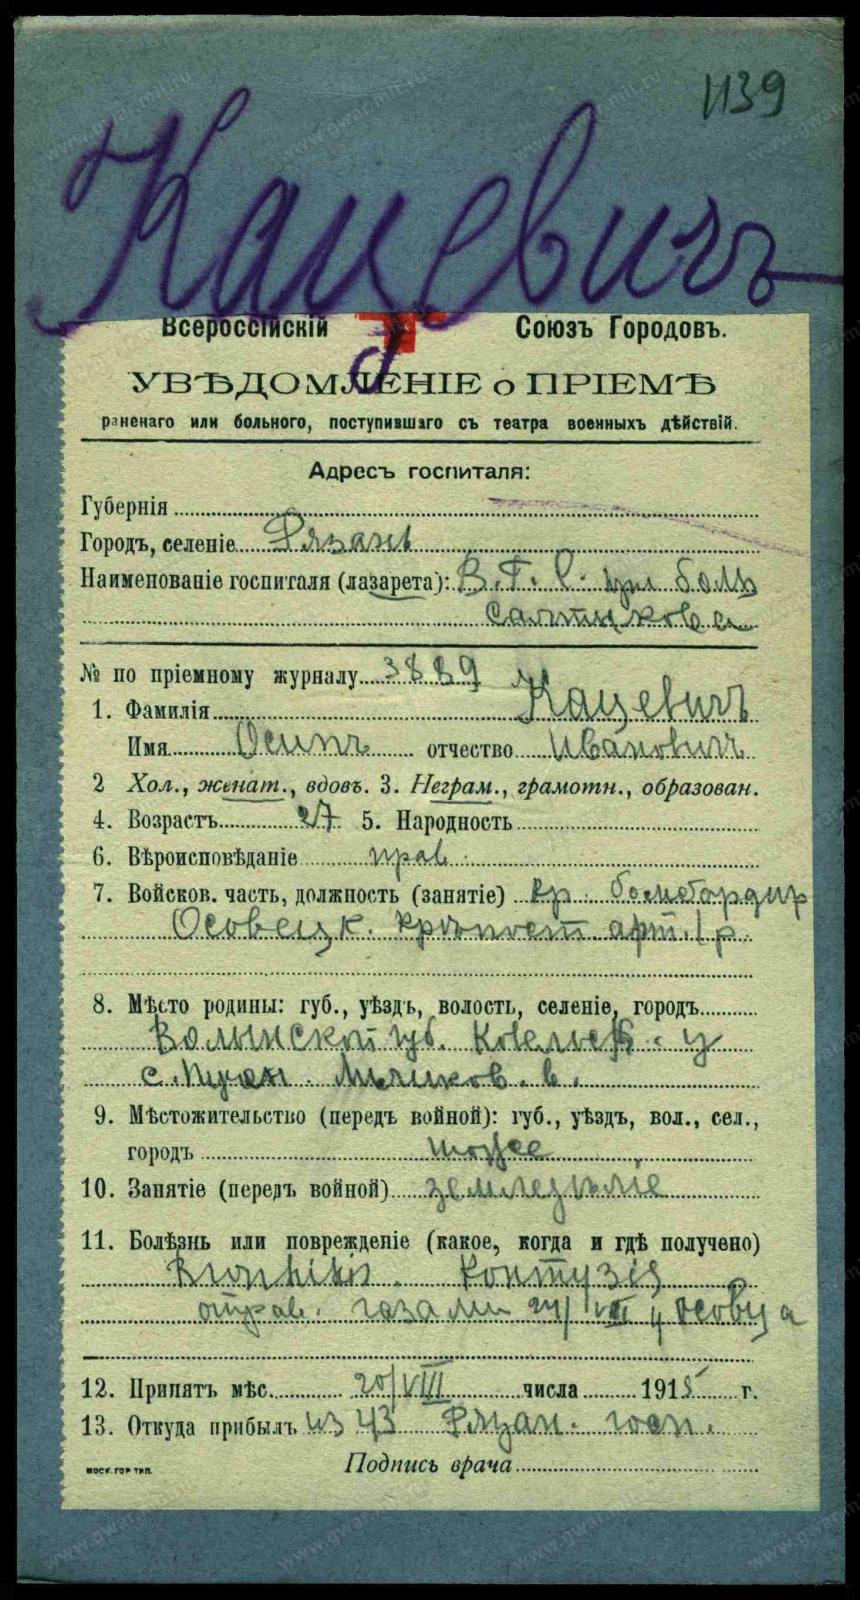 1139
Кацевичъ
Всероссійскій Союзъ Городовъ.
УВѢДОМЛЕНІЕ о ПРІЕМѢ
раненаго или больного, поступившаго съ театра военныхъ дѣйствій.
Адресъ госпиталя:
Губернія
Городъ, селеніе Рязань
Наименованіе госпиталя (лазарета): В. Г. С. при больн
Салтыкова
№ по пріемному журналу 3889
1. Фамилія Кацевичъ
Имя Осипъ отчество Ивановичъ
2 Хол., женат., вдовъ. 3. Неграм., грамотн., образован.
4. Возрастъ 27 5. Народность
6. Вѣроисповѣданіе прав.
7. Войсков. часть, должность (занятіе) кр. бомбардир
Осовецк. крѣпост. арт. / р.
8. Мѣсто родины: губ., уѣздъ, волость, селеніе, городъ
Волынской губ. Ковельск. у
с. в.
9. Мѣстожительство (передъ войной): губ., уѣздъ, вол., сел.,
городъ тоже
10. Занятіе (передъ войной) земледѣліе
11. Болѣзнь или поврежденіе (какое, когда и гдѣ получено)
Bronhitis. Контузія
отрав. газами 24/VII у Осовца
12. Принятъ мѣс. 20/VIII числа 1915 г.
13. Откуда прибылъ из 43 Рязан. госп.
Подпись врача
МОСК. ГОР ТИП.
www.gwar.mil.ru